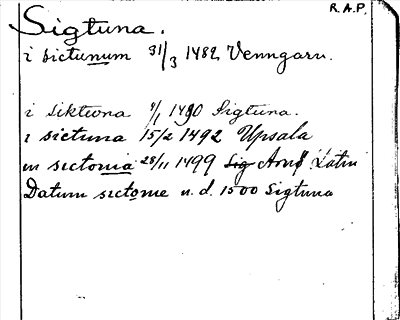 R.A.P.
Sigtuna.
i sictunum 31/3 1482 Venngarn.
i siktwna 9/1 1490 Sigtuna.
i sictuna 15/2 1492 Upsala
in sictonia 28/11 1499 Sig Arnö Latin
Datum sictome u. d. 1500 Sigtuna